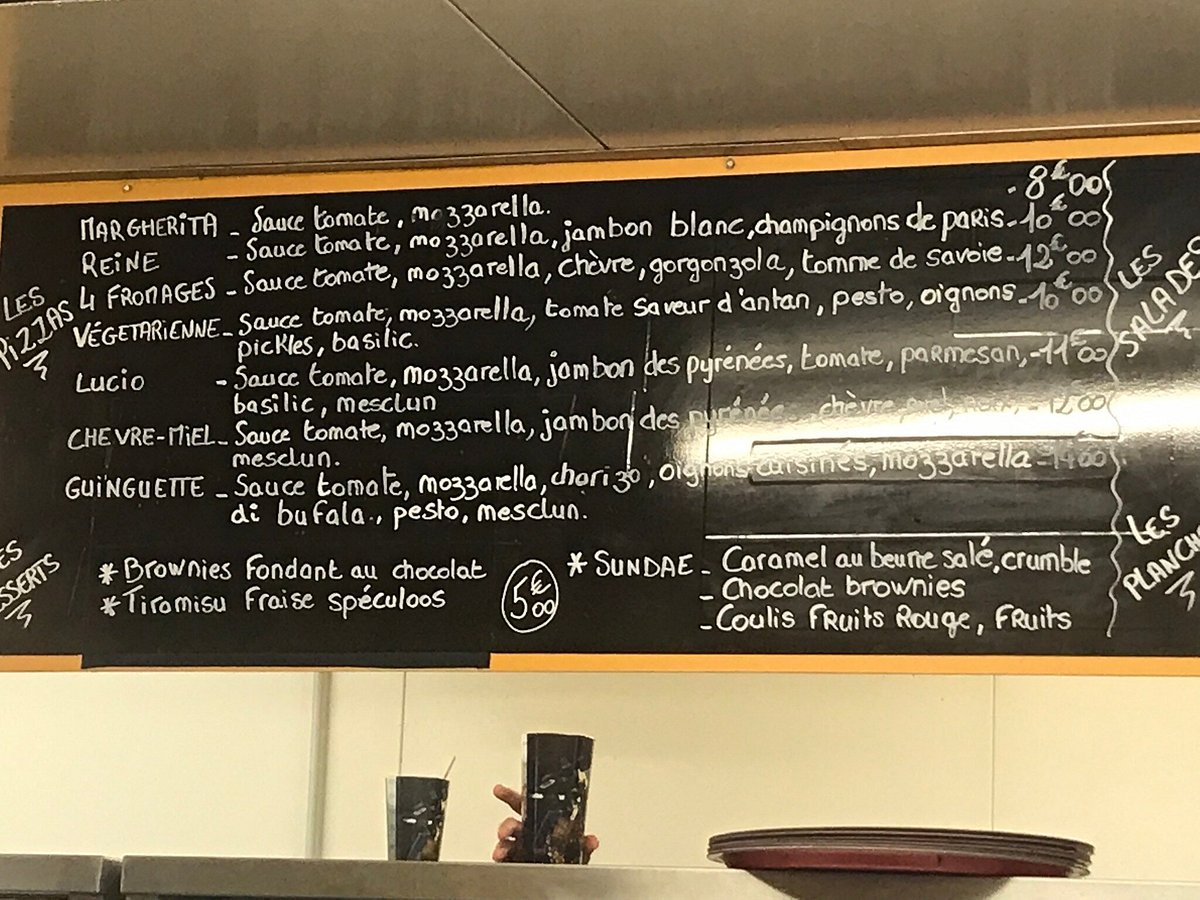 LES PIZZAS
MARGHERITA - Sauce tomate, mozzarella. - 8€00
REINE - Sauce tomate, mozzarella, jambon blanc, champignons de paris - 10€00
4 FROMAGES - Sauce tomate, mozzarella, chèvre, gorgonzola, tomme de savoie - 12€00
VÉGETARIENNE - Sauce tomate, mozzarella, tomate saveur d'antan, pesto, oignons - 10€00
pickles, basilic.
LUCIO - Sauce tomate, mozzarella, jambon des pyrénées, tomate, parmesan, - 11€00
basilic, mesclun
CHEVRE-MIEL - Sauce tomate, mozzarella, jambon des pyrénées, chèvre, - 12€00
mesclun.
GUINGUETTE - Sauce tomate, mozzarella, chorizo, oignons cuisinés, mozzarella - 14€00
di bufala., pesto, mesclun.
* Brownies Fondant au chocolat
* Tiramisu Fraise spéculoos
5€00
* SUNDAE - Caramel au beurre salé, crumble
- Chocolat brownies
- Coulis Fruits Rouge, Fruits
LES
SALADES
LES